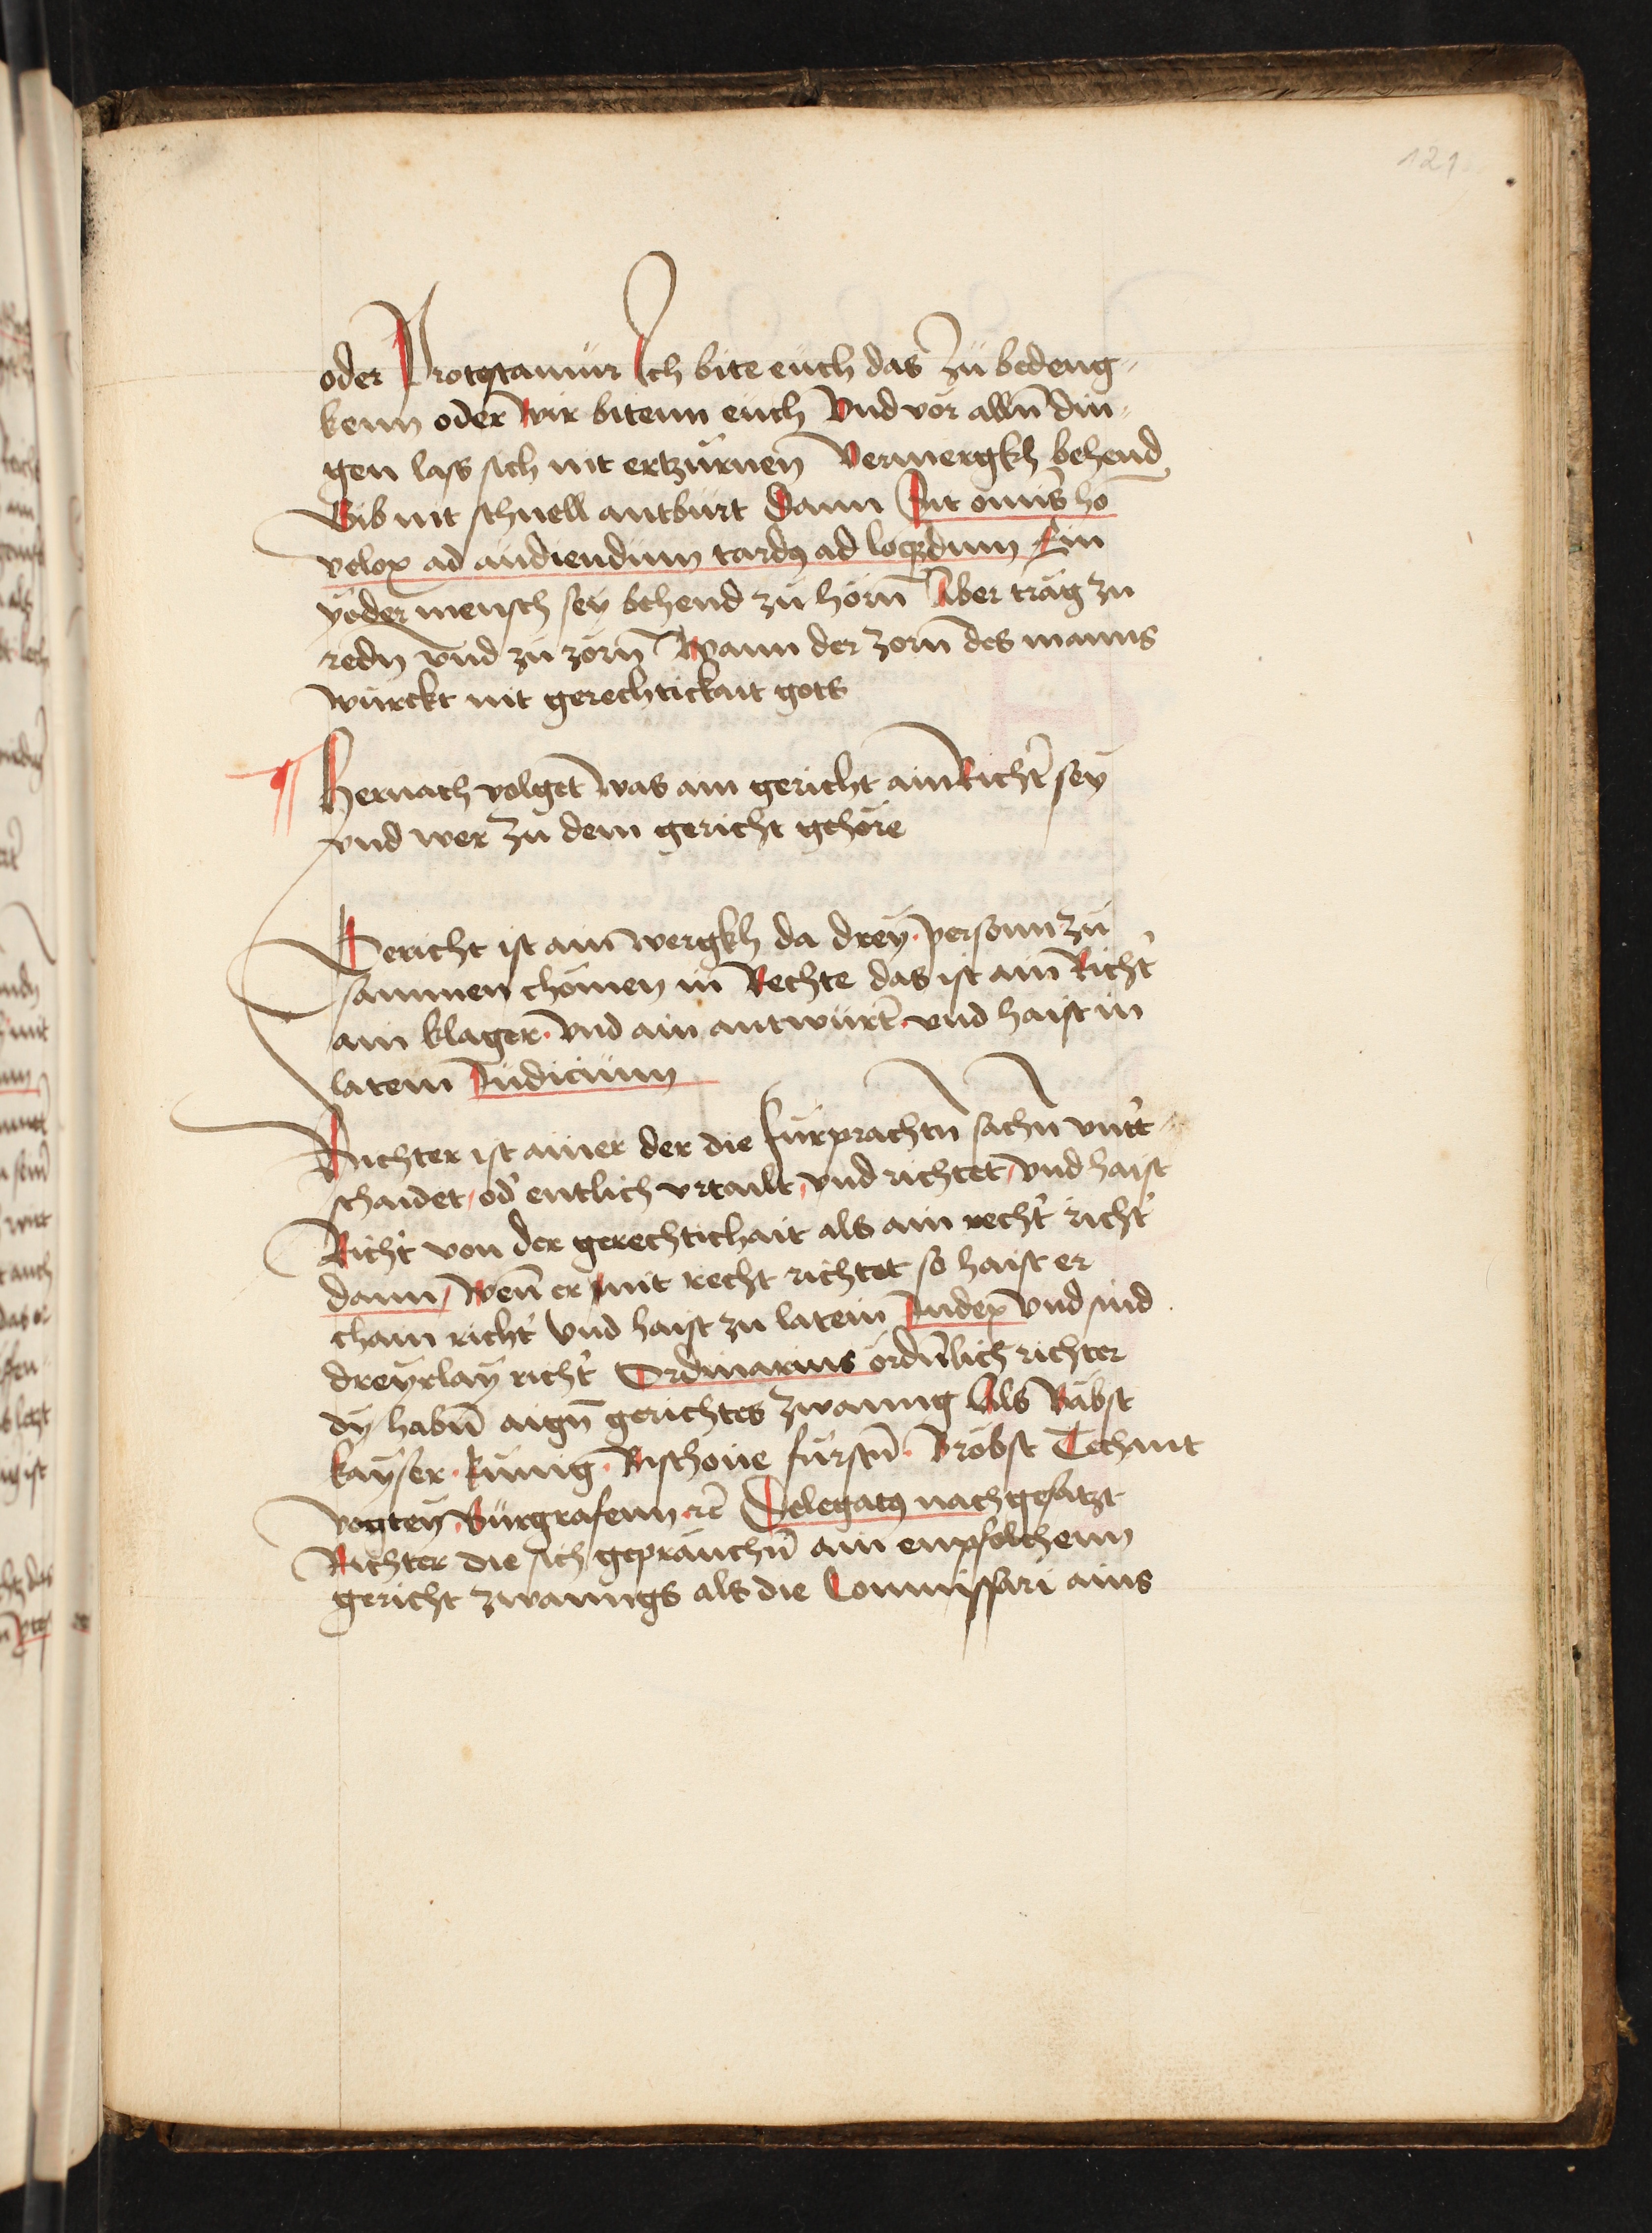 121
oder Protestamur Ich bite euch das Zu bedeng-
kenn oder wir bitenn euch Vnd vor alln̄ din-
gen lass sich nit ertzürnen Vermergkh behend
Gib nit schnell antburt Dann Sit om̄is hō
velox ad audiendum tardꝰ ad loqndum Ein
yeder mensch sey behend zu hörn̄ Aber träg zu
redn vnd zu zörn̄ Wann der zorn̄ des manns
würckt nit gerechtickait gots
¶ Hernach volget was ain gericht ain Richtˀ sey
vnd wer zu dem gericht gehöre
Gericht ist ain wergkh da drey personn zu
sammen chömen in Rechte das ist ain Richtˀ
ain klager · vnd ain antwurtˀ · vnd haist in
latein Iudicium
Richter ist ainer der die fürprachtn sachn̄ vntˀ-
schaidet / odˀ entlich vrtailt / vnd richtet / vnd haist
Richtˀ von der gerechtichait als ain rechtˀ richtˀ
dann / wen̄ er nit recht richtet so haist er
chain richtˀ Vnd haist zu latein Iudex Vnd sind
dreyrlay richtˀ Ordinarius ordn̄lich richter
dy habn̄ aign̄ gerichtes zwanng Als Bäbst
kayser · künig · Bischoue fürstn̄ · Bröbst Techant
vogtey · Burgrafenn · rc̄ Delegatꝰ nachgesatzt
Richter die sich geprauchn̄ ain enpfolchenn
gericht zwanngs als die Commissari ains